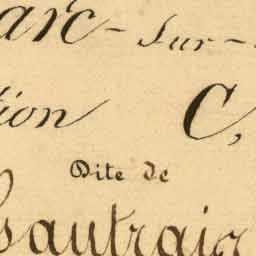 arc-sur-
tion C,
Dite de
sautraie